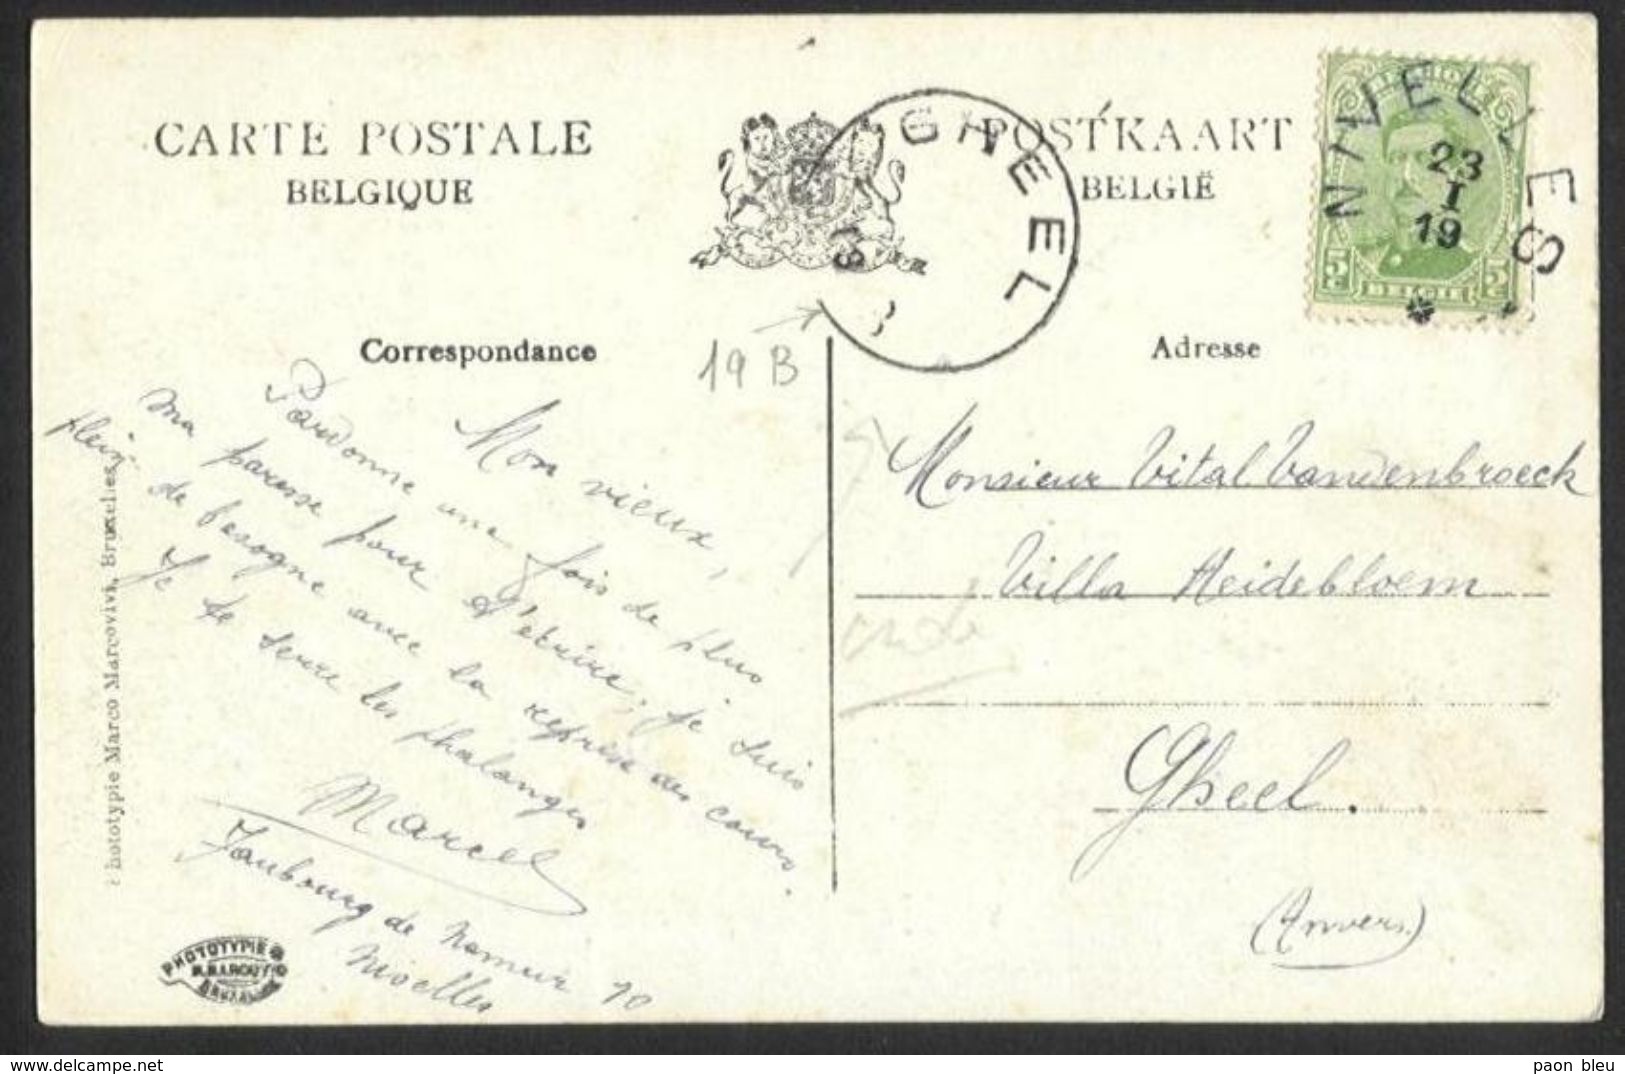 CARTE POSTALE
BELGIQUE
POSTKAART
BELGIË
GHEEL
19
NIVELLES
23
I
19
5 5
BELGIE
Correspondance
Adresse
19 B
Mon vieux,
Pardonne une fois de plus
ma paresse pour t'écrire; je suis
plein de besogne avec la reprise des cours.
Je te serre les phalanges
Marcel
Faubourg de Namur 10
Nivelles
Monsieur Vital Vandenbroeck
Villa Heidebloem
Gheel.
(Anvers)
Phototypie Marco Marcovivi, Bruxelles
PHOTOTYPIE
M. MARCOVICI
BRUXELLES
paon bleu